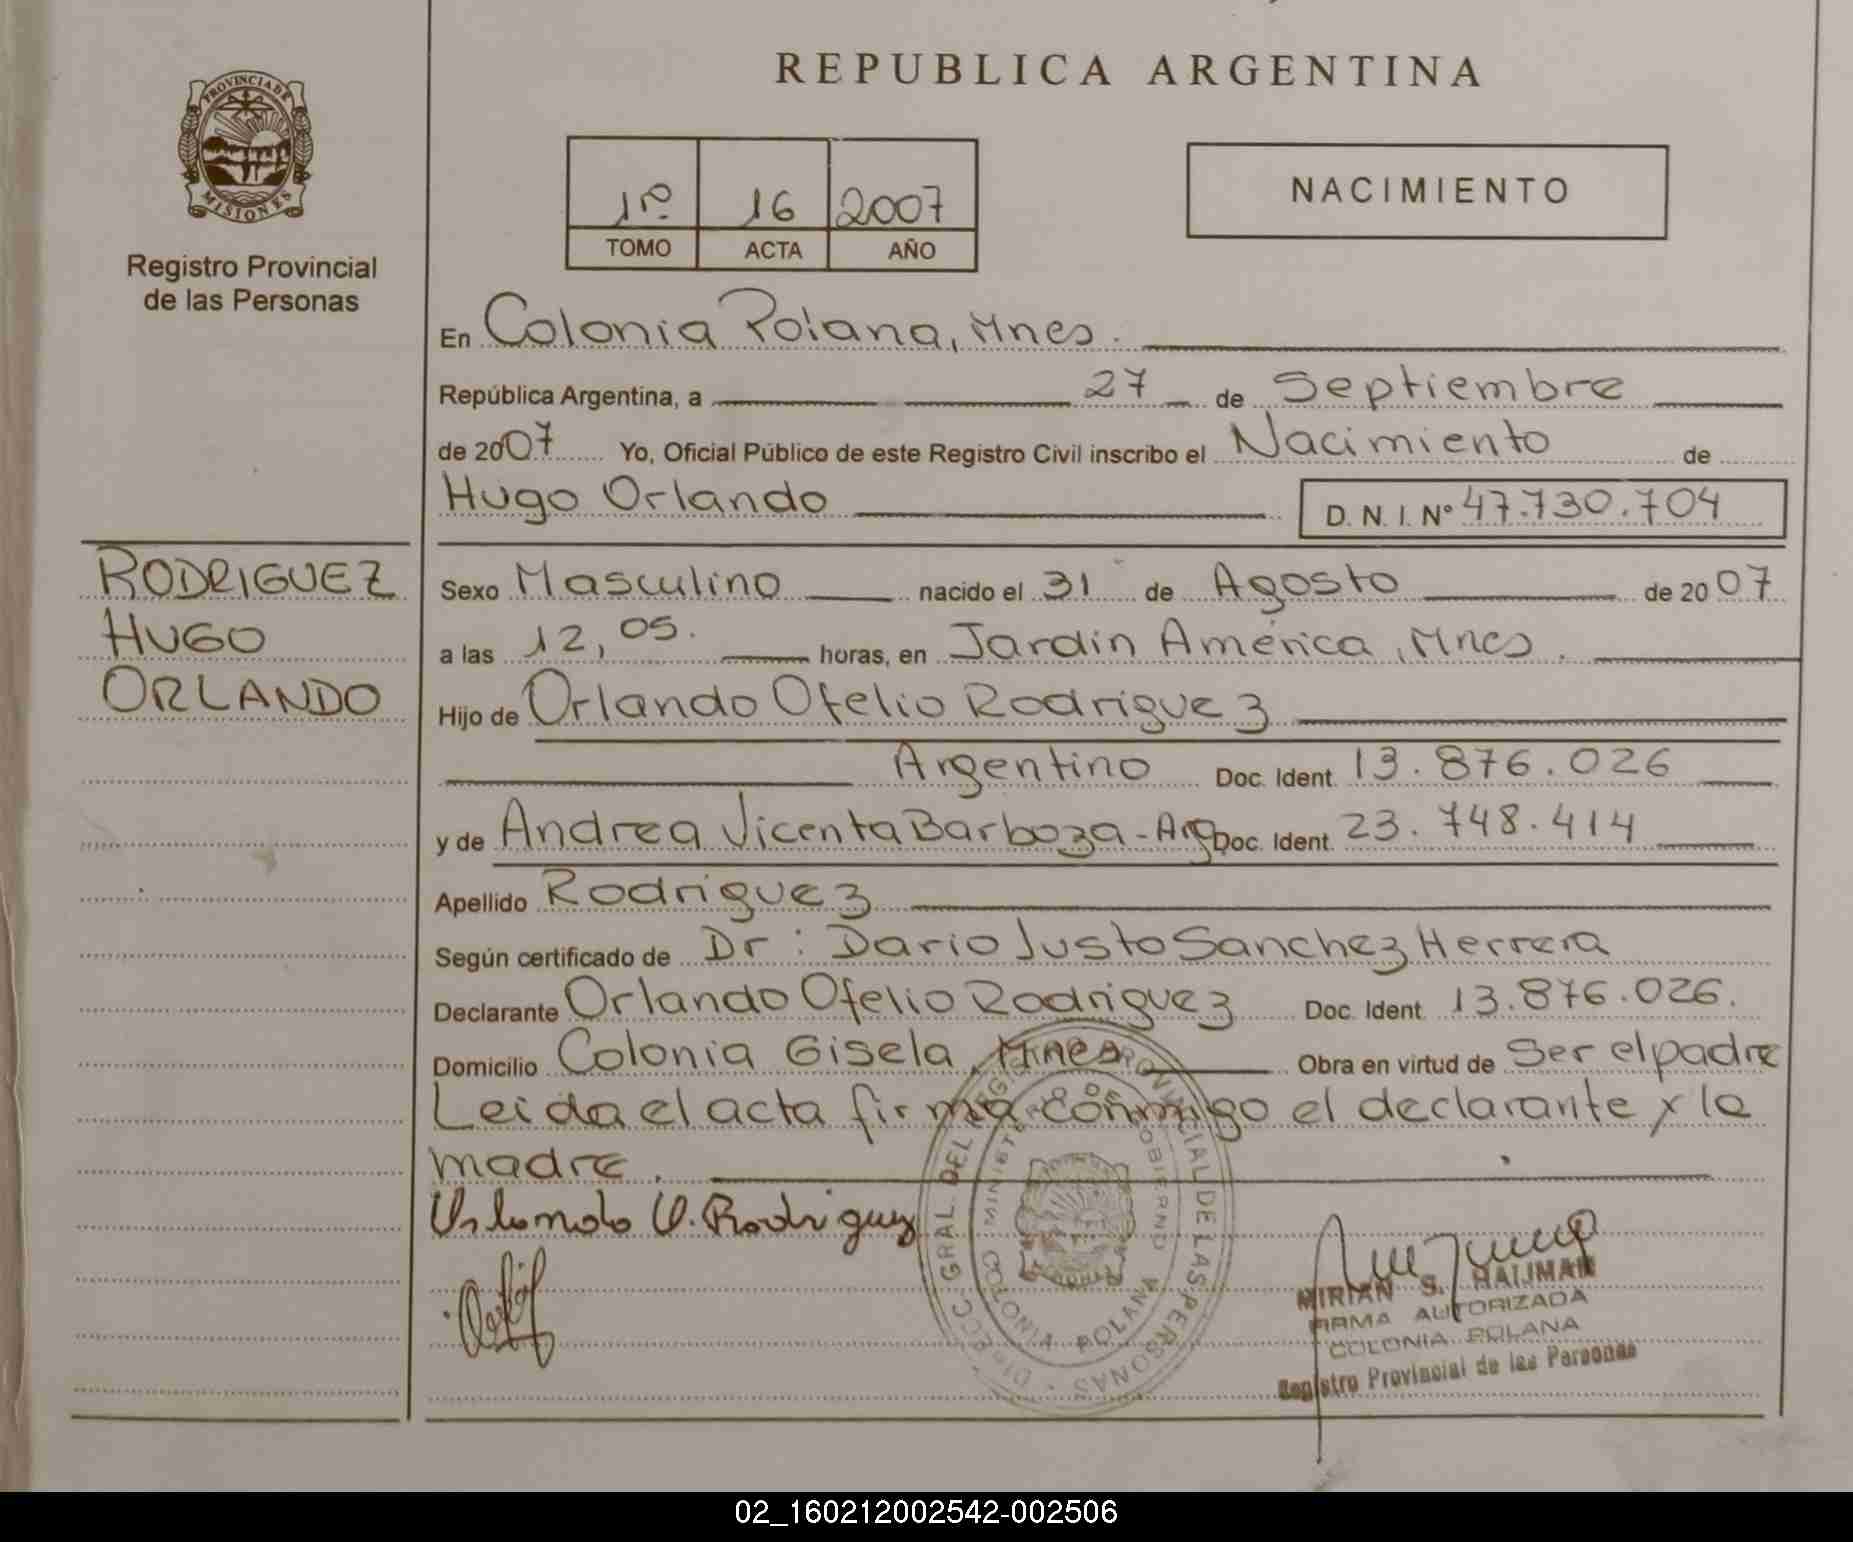 REPUBLICA ARGENTINA
PROVINCIA DE MISIONES
Registro Provincial
de las Personas
1º 16 2007
TOMO ACTA AÑO
NACIMIENTO
En Colonia Polana, Mnes.
República Argentina, a 27 de Septiembre
de 2007 Yo, Oficial Público de este Registro Civil inscribo el Nacimiento de
Hugo Orlando D. N. I. Nº 47.730.704
RODRIGUEZ
HUGO
ORLANDO
Sexo Masculino nacido el 31 de Agosto de 2007
a las 12,05. horas, en Jardín América, Mnes.
Hijo de Orlando Ofelio Rodriguez
Argentino Doc. Ident. 13.876.026
y de Andrea Vicenta Barboza - Arg Doc. Ident. 23.748.414
Apellido Rodriguez
Según certificado de Dr: Dario Justo Sanchez Herrera
Declarante Orlando Ofelio Rodriguez Doc. Ident. 13.876.026.
Domicilio Colonia Gisela, Mnes Obra en virtud de Ser el padre
Leida el acta firma conmigo el declarante y la
madre.
Orlando O. Rodriguez
DIRECC. GRAL. DEL REGISTRO PROVINCIAL DE LAS PERSONAS
MINISTERIO DE GOBIERNO
COLONIA POLANA
MIRIAN S. HAIJMAN
FIRMA AUTORIZADA
COLONIA POLANA
Registro Provincial de las Personas
02_160212002542-002506